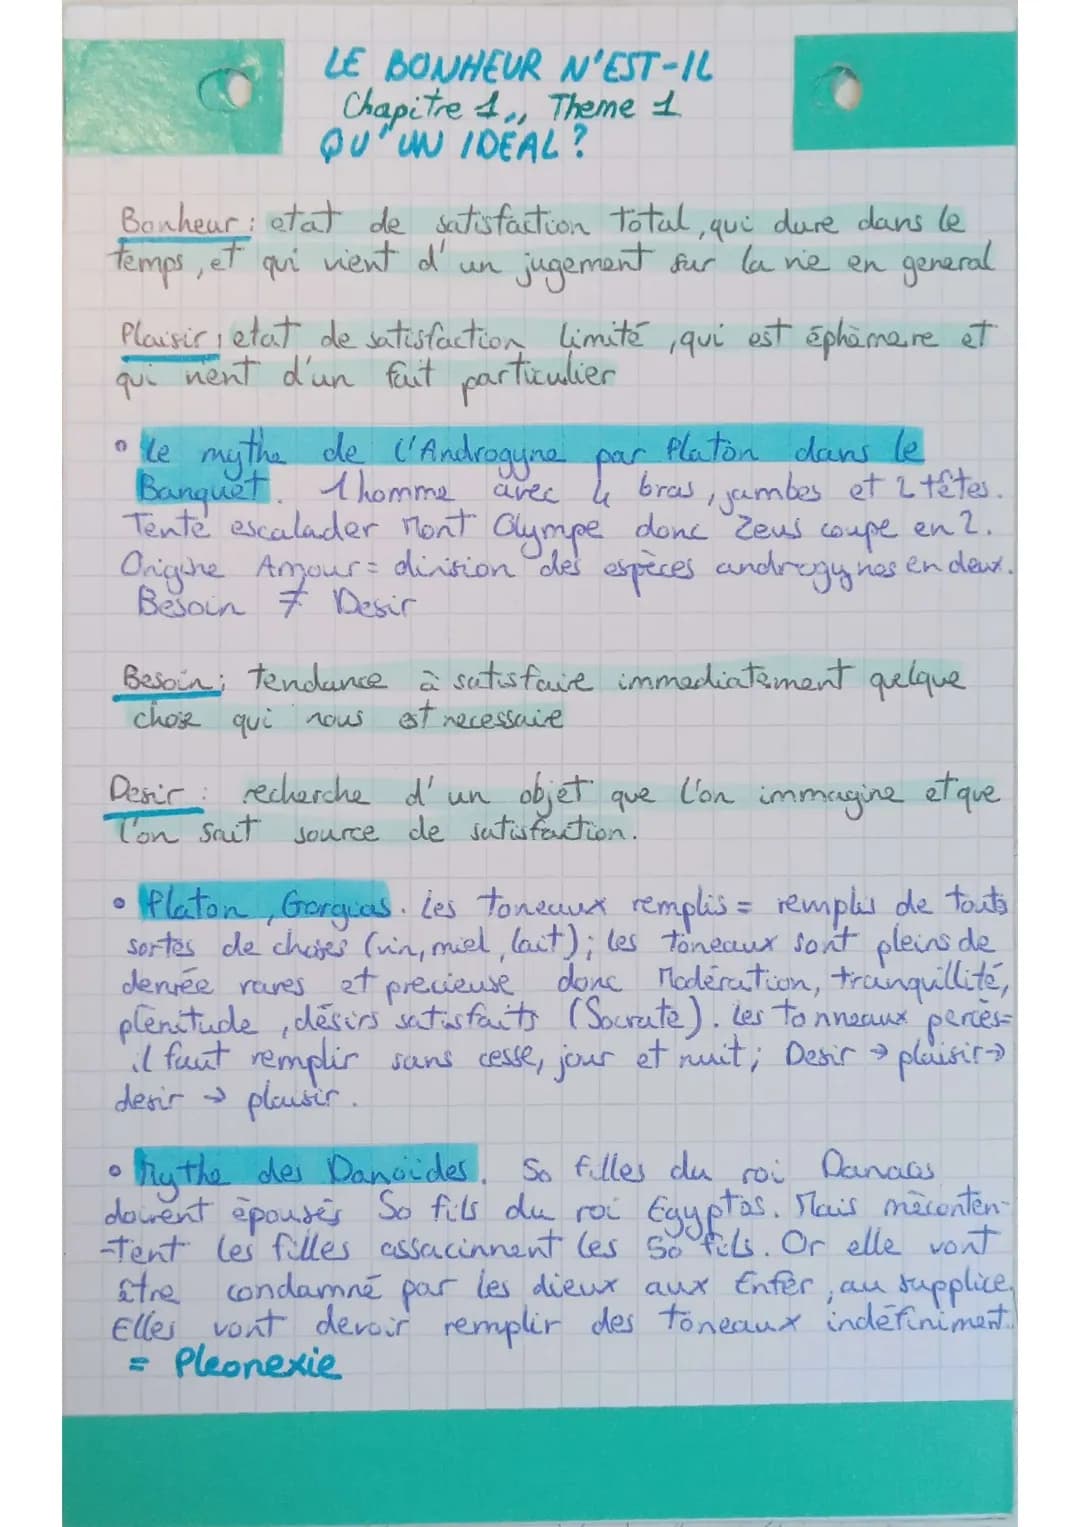 LE BONHEUR N'EST-IL
Chapitre 1,, Theme 1
QU'UN IDEAL ?
Bonheur : etat de satisfaction total, qui dure dans le
temps, et qui vient d'un jugement sur la vie en general
Plaisir ; etat de satisfaction limité, qui est éphèmere et
qui vient d'un fait particulier
• Le mythe de l'Androgyne par Platon dans le
Banquet. 1 homme avec 4 bras, jambes et 2 têtes.
Tente escalader Mont Olympe donc Zeus coupe en 2.
Origine Amour = division des espèces androgynes en deux.
Besoin ≠ Desir
Besoin ; tendance à satisfaire immediatement quelque
chose qui nous est necessaire
Desir : recherche d'un objet que l'on immagine et que
l'on sait source de satisfaction.
• Platon, Gorgias. Les toneaux remplis = remplis de touts
sortes de choses (vin, miel, lait) ; les toneaux sont pleins de
denrée rares et precieuse donc Modération, tranquillité,
plénitude, désirs satisfaits (Socrate). Les tonneaux percés=
il faut remplir sans cesse, jour et nuit ; Desir → plaisir→
desir → plaisir.
• Mythe des Danoïdes. 50 filles du roi Danaos
doivent épousés 50 fils du roi Egyptos. Mais mèconten-
-tent les filles assacinnent les 50 fils. Or elle vont
être condamné par les dieux aux Enfer, au supplice.
Elles vont devoir remplir des toneaux indéfiniment.
= Pleonexie